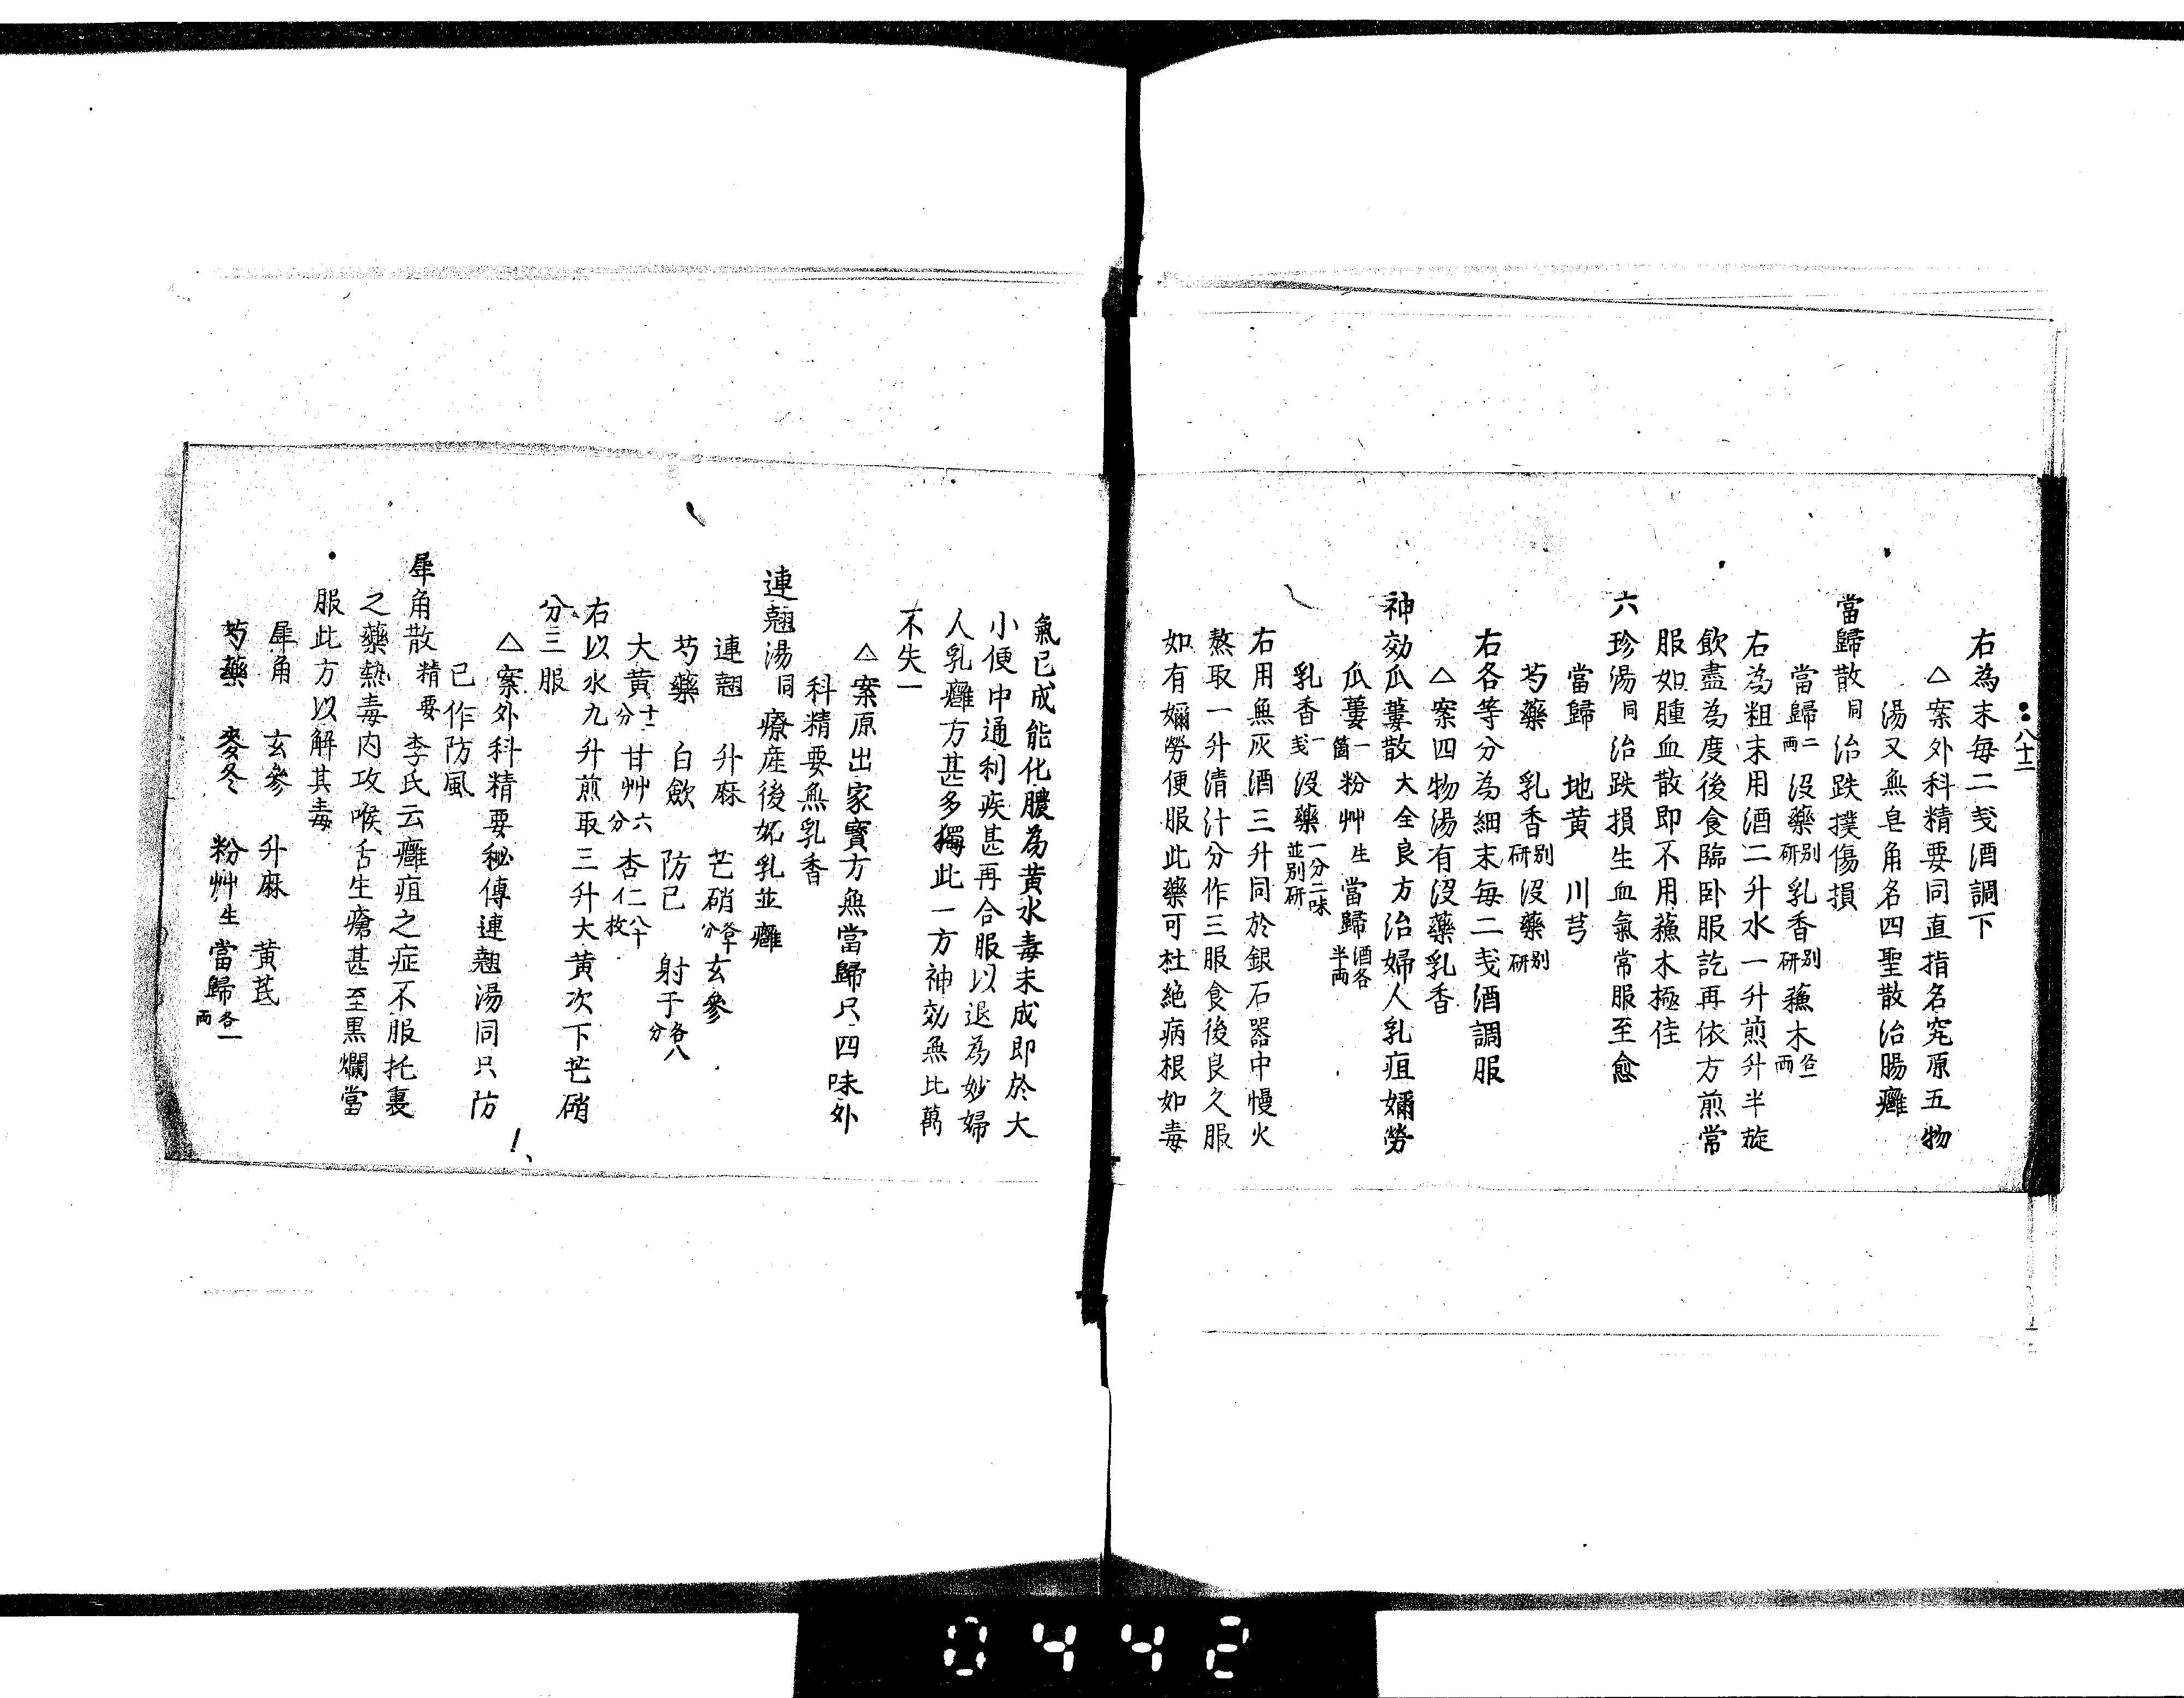 八十二
右為末毎二戔酒調下
△案外科精要同直指名究原五物
湯又無皂角名四聖散治腸癰
當歸散同治跌撲傷損
當歸二両没藥別研乳香別研蘓木各一両
右為粗末用酒二升水一升煎升半旋
飲盡為度後食臨卧服訖再依方煎常
服如腫血散即不用蘓木極佳
六珍湯同治跌損生血氣常服至愈
當歸 地黄 川芎
芍藥 乳香別研没藥別研
右各等分為細末毎二戔酒調服
△案四物湯有没藥乳香
神効瓜蔞散大全良方治婦人乳疽嬭勞
瓜蔞一箇粉艸生當歸酒各半両
乳香一戔没藥一分二味並別研
右用無灰酒三升同於銀石器中慢火
熬取一升清汁分作三服食後良久服
如有嬭勞便服此藥可杜絶病根如毒
氣已成能化膿為黄水毒未成即於大
小便中通利疾甚再合服以退為妙婦
人乳癰方甚多獨此一方神効無比萬
不失一
△案原出家寶方無當歸只四味外
科精要無乳香
連翹湯同療産後妬乳並癰
連翹 升麻 芒硝各十分玄參
芍藥 白歛 防已 射干各八分
大黄十二分甘艸六分杏仁八十枚
右以水九升煎取三升大黄次下芒硝
分三服
△案外科精要秘傳連翹湯同只防
已作防風
犀角散精要李氏云癰疽之症不服托裏
之藥熱毒内攻喉舌生瘡甚至黒爛當
服此方以解其毒
犀角 玄參 升麻 黄芪
芍藥 麥冬 粉艸生當歸各一両
0442